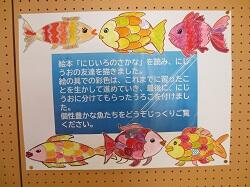 絵本「にじいろのさかな」を読み、にじ
うおの友達を描きました。
絵の具での彩色は、これまでに習ったこ
とを生かして進めていき、最後に、にじ
うおに分けてもらったうろこを付けました。
個性豊かな魚たちをどうぞじっくりご覧
ください。